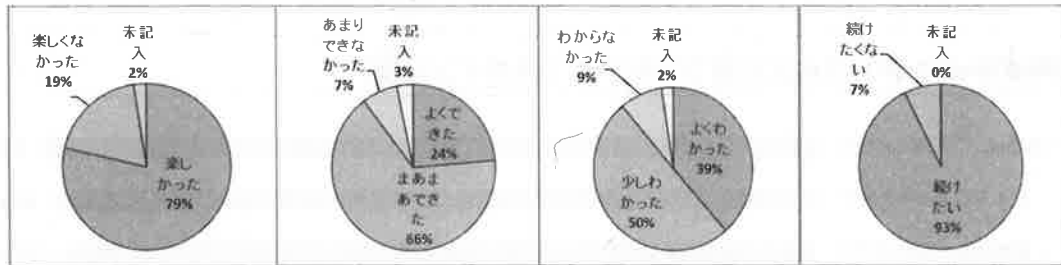 楽しくな
かった
19%
未記
入
2%
楽し
かった
79%
あまり
できな
かった
7%
未記
入
3%
よくで
きた
24%
まあま
あでき
た
66%
わからな
かった
9%
未記
入
2%
よくわ
かった
39%
少しわ
かった
50%
続け
たくな
い
7%
未記
入
0%
続け
たい
93%